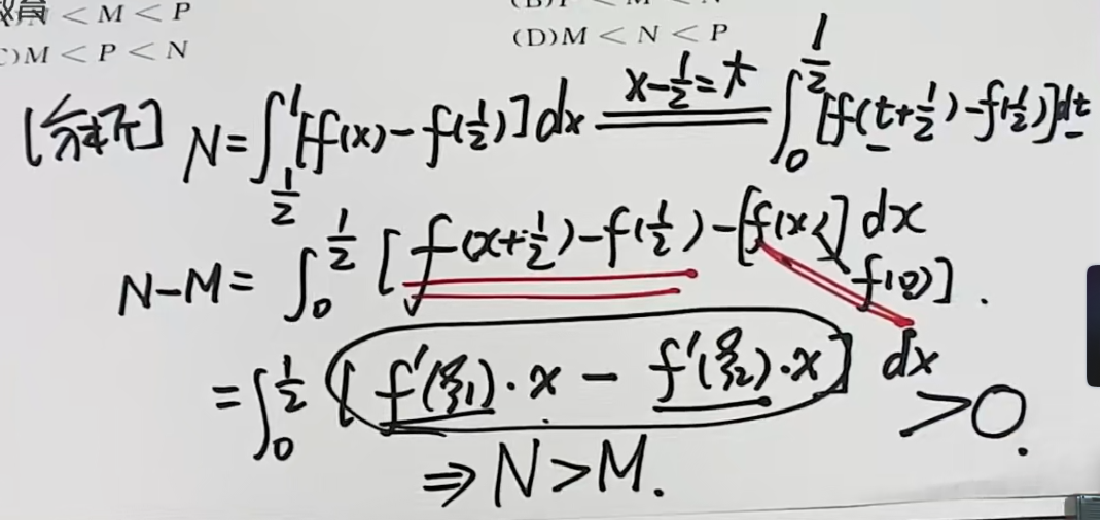 教育 N < M < P
C)M < P < N
(D)M < N < P
[解析] N=∫_{1/2}^{1}[f(x)-f(1/2)]dx x-1/2=t ∫_0^{1/2}[f(t+1/2)-f(1/2)]dt
N-M=∫_0^{1/2}[f(x+1/2)-f(1/2)-[f(x)]dx
f(0)].
=∫_0^{1/2}[f'(ξ1)·x-f'(ξ2)·x]dx
>0.
⇒N>M.